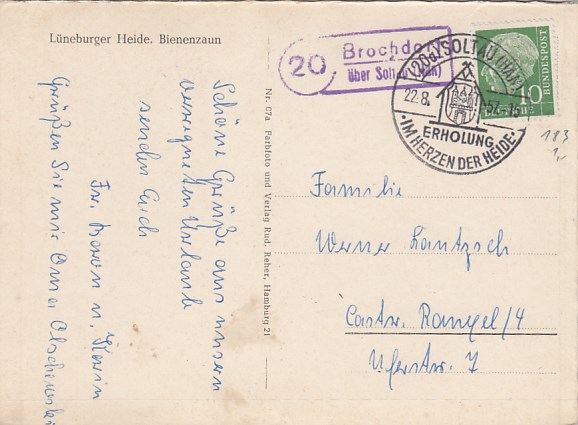 Lüneburger Heide. Bienenzaun
Schöne Grüße aus unserm
verregneten Urlaub
senden Euch
Fr. u. Karin
Grüßen Sie mir Oma
Nr. 07a Farbfoto und Verlag Rud. Reher, Hamburg 21
20
Brochdo
über Solt
(20a) SOLTAU (HAN)
22.8.
57-16
ERHOLUNG
IM HERZEN DER HEIDE
DEUTSCHE BUNDESPOST
10
183
1,-
Familie
Werner Lantzsch
Castr. Rauxel/4
Uferstr. 7